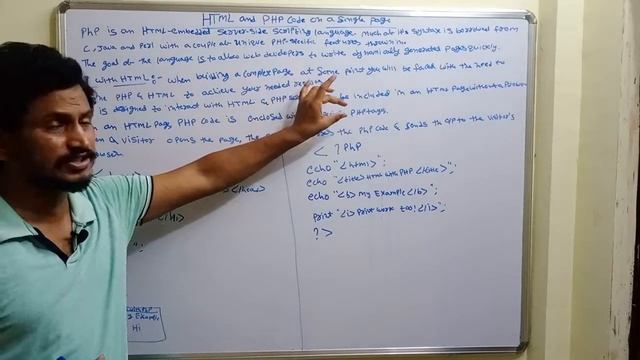 HTML and PHP Code on a Single Page
PHP is an HTML-embedded server-side scripting language. Much of its syntax is borrowed from
C, Java and Perl with a couple of unique PHP-specific features thrown in.
The goal of the language is to allow web developers to write dynamically generated pages quickly.
with HTML :- When building a complex page at some point you will be faced with the need to
PHP & HTML to achieve your needed
is designed to interact with HTML & PHP be included in an HTML page without a
an HTML page, PHP code is enclosed PHP tags.
a visitor opens the page, the the PHP code & sends the o/p to the visitor's
< ? PHP
echo "<html>";
echo "<title> HTML with PHP </title>";
echo "<b> My Example </b>";
print "<i> Print work too! </i>";
?>
";
Example
Hi